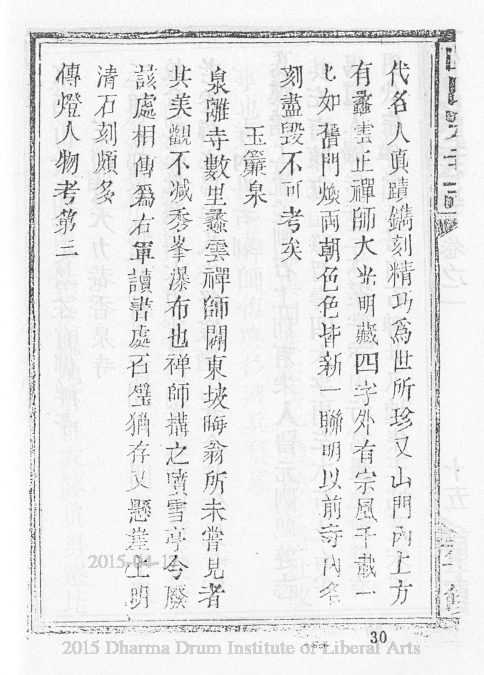 代名人真蹟鐫刻精巧為世所珍又山門內上方
有蠡雲止禪師大光明藏四字外有宗風千載一
七如舊門煥兩朝色色皆新一聯明以前寺內名
刻盡毀不可考矣
玉簾泉
泉離寺數里蠡雲禪師闢東坡晦翁所未嘗見者
其美觀不減秀峯瀑布也禪師搆之賓雪亭今廢
該處相傳爲右軍讀書處石壁猶存又懸崖上明
清石刻頗多
傳燈人物考第三
30
2015-04-1
2015 Dharma Drum Institute of Liberal Arts